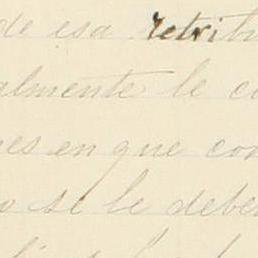 de esa retri
almente le c
es en que con
o se le debe